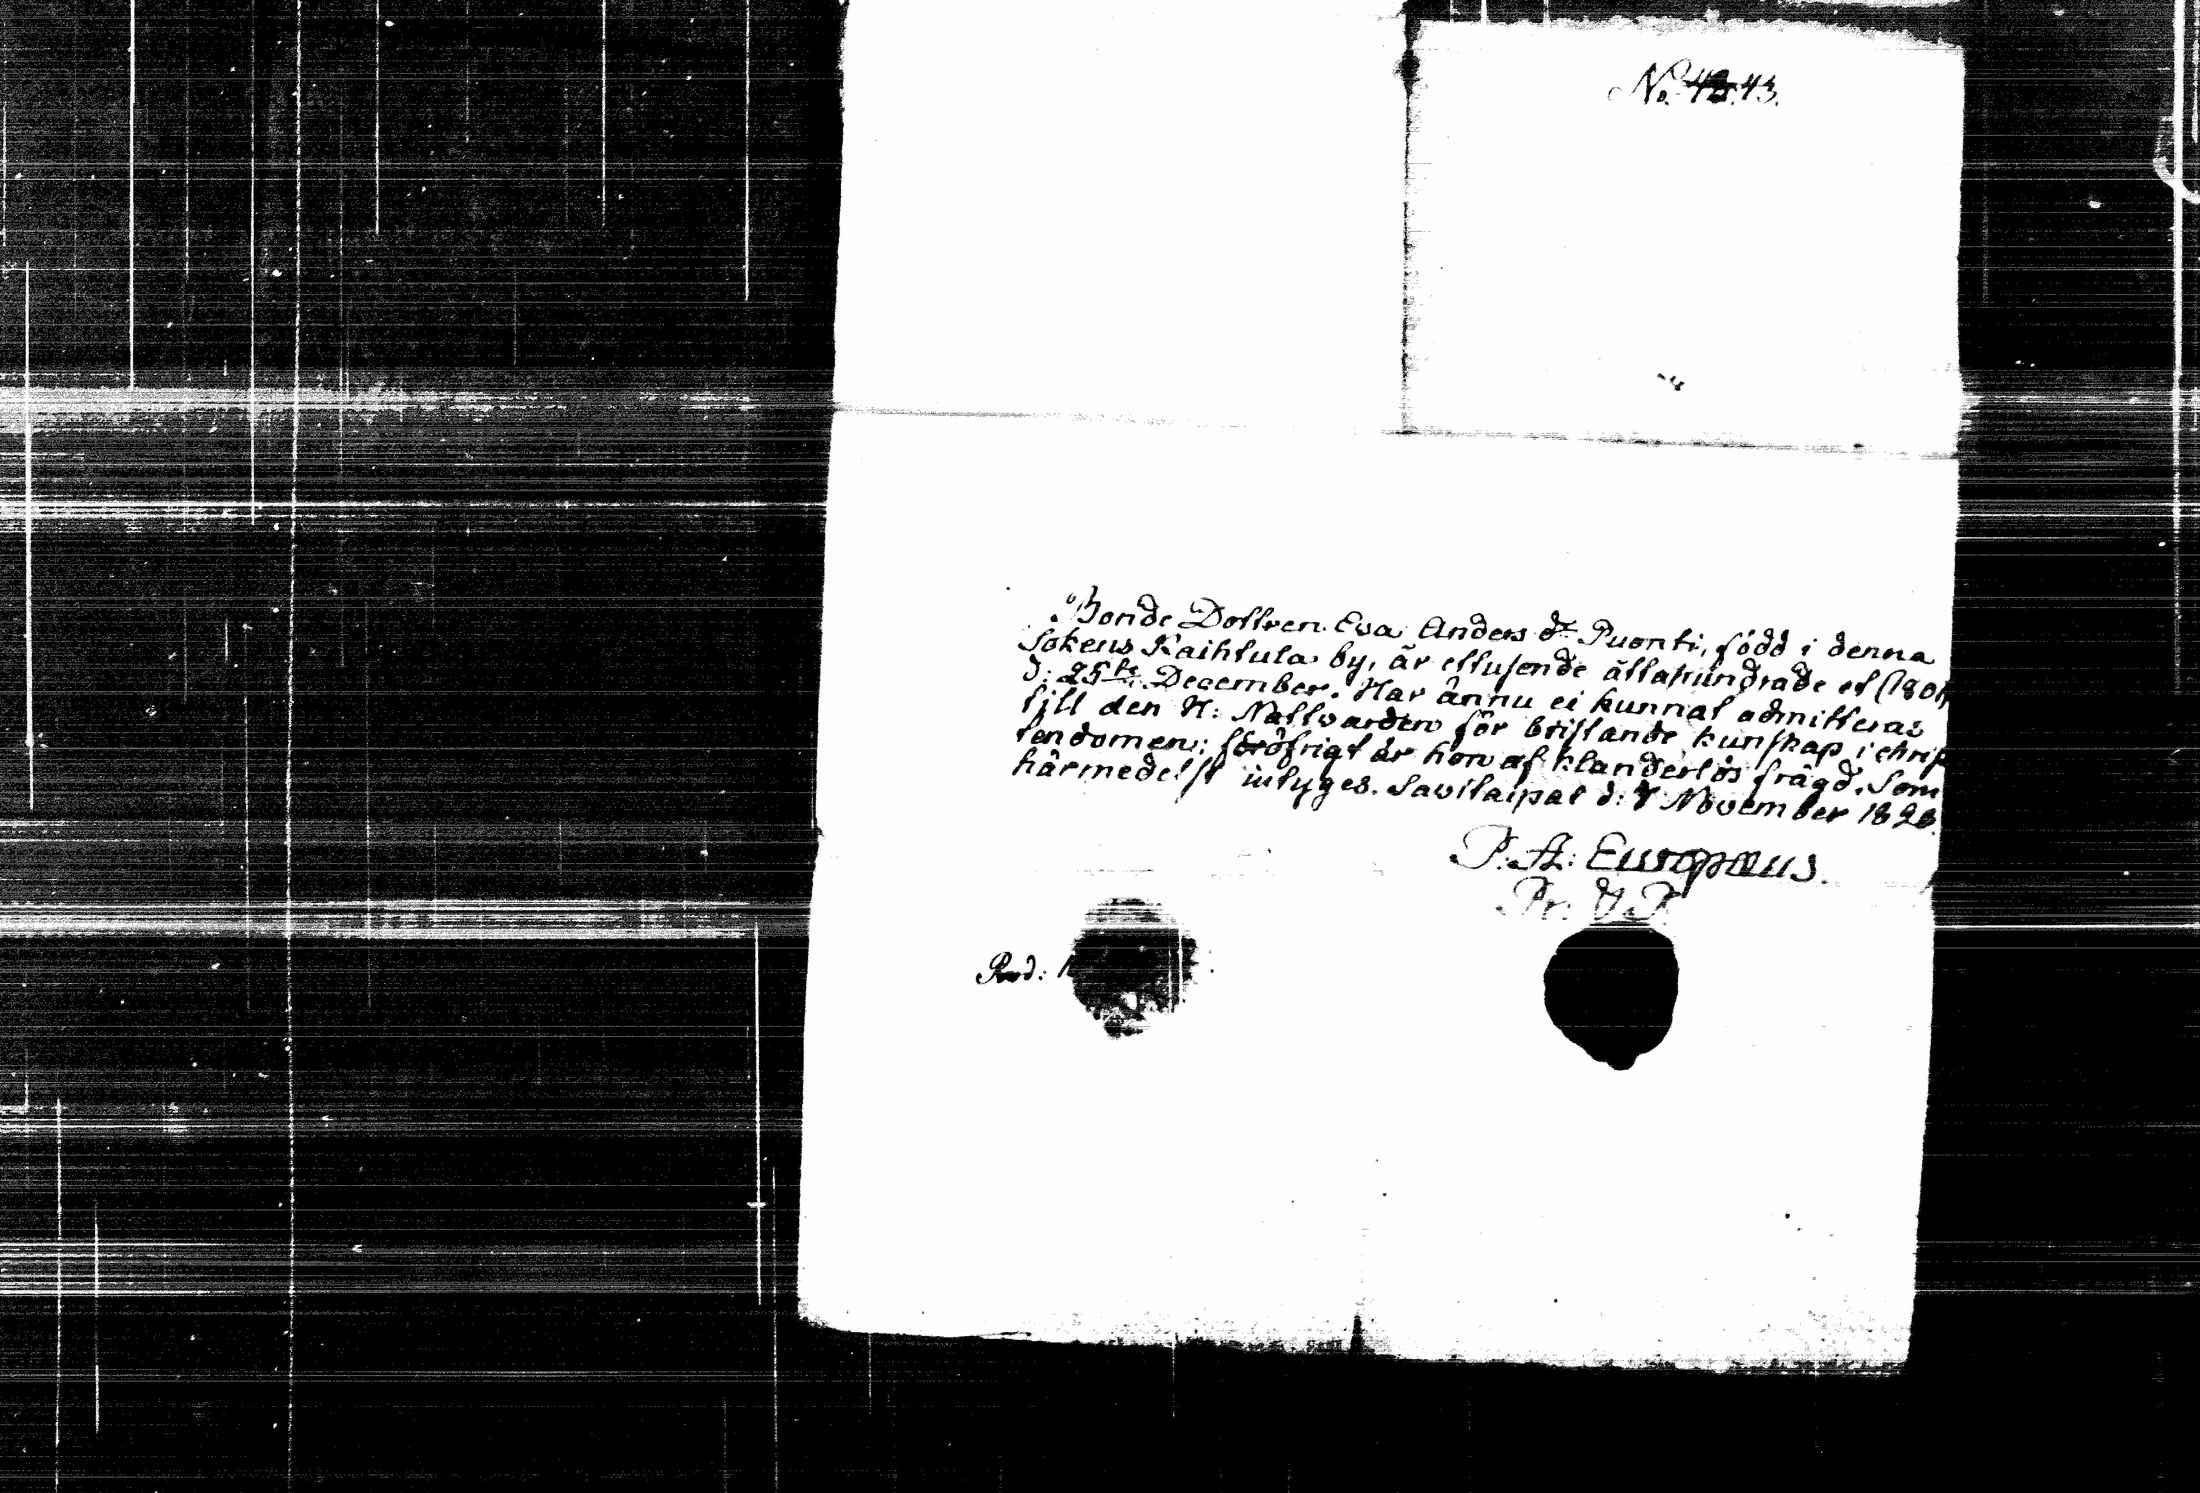 No. 43.
Bonde Dottren Eva Anders dr Puonti, född i denna
Sokens Kaihtula by, är ettusende åttahundrade et (1801)
d: 25te December. Har ännu ei kunnat admitteras
till den H: Nattvarden för bristande kunskap i chris
tendomen; föröfrigt är hon af klanderlös frägd. Som
härmedelst intyges. Savitaipal d: 7 November 1820.
P. A: Europæus.
Pr: & P